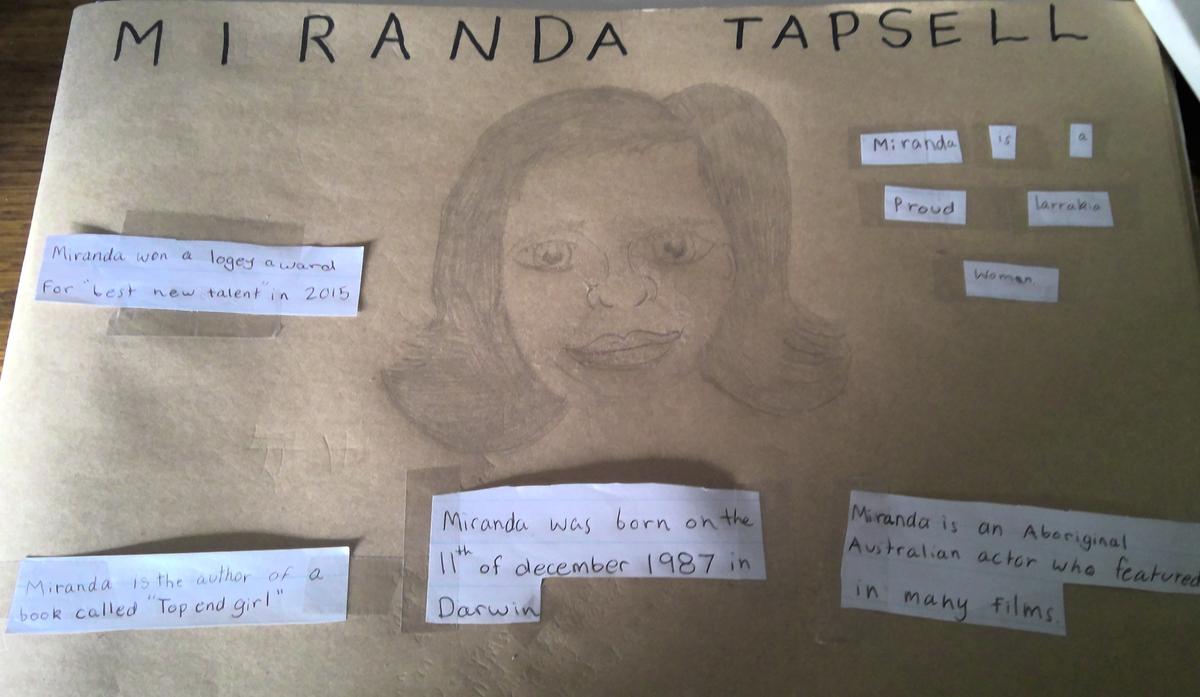 MIRANDA TAPSELL
Miranda is a
Proud larrakia
Woman
Miranda won a logey award
For "best new talent" in 2015
Miranda was born on the
11th of december 1987 in
Darwin
Miranda is an Aboriginal
Australian actor who featured
in many films.
Miranda is the author of a
book called "Top end girl"